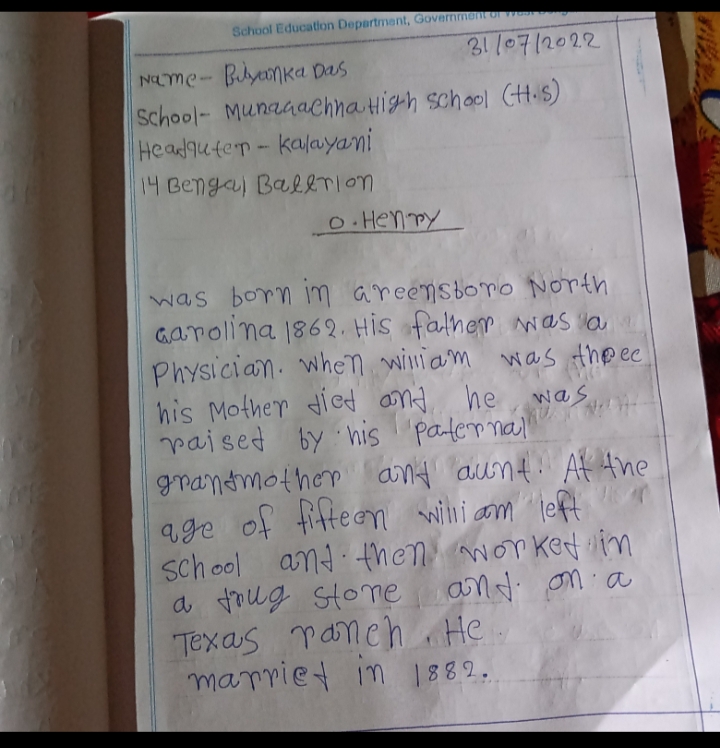 School Education Department, Government of West
31/07/2022
Name- Biyanka Das
School- Munagachha High School (H.S)
Headquter - Kalayani
14 Bengal Battrion
O. Henry
was born in Greensboro North
Carolina 1862. His father was a
Physician. When william was threee
his Mother died and he was
raised by his paternal
grandmother and aunt. At the
age of fifteen william left
school and then worked in
a drug store and on a
Texas ranch. He
married in 1882.